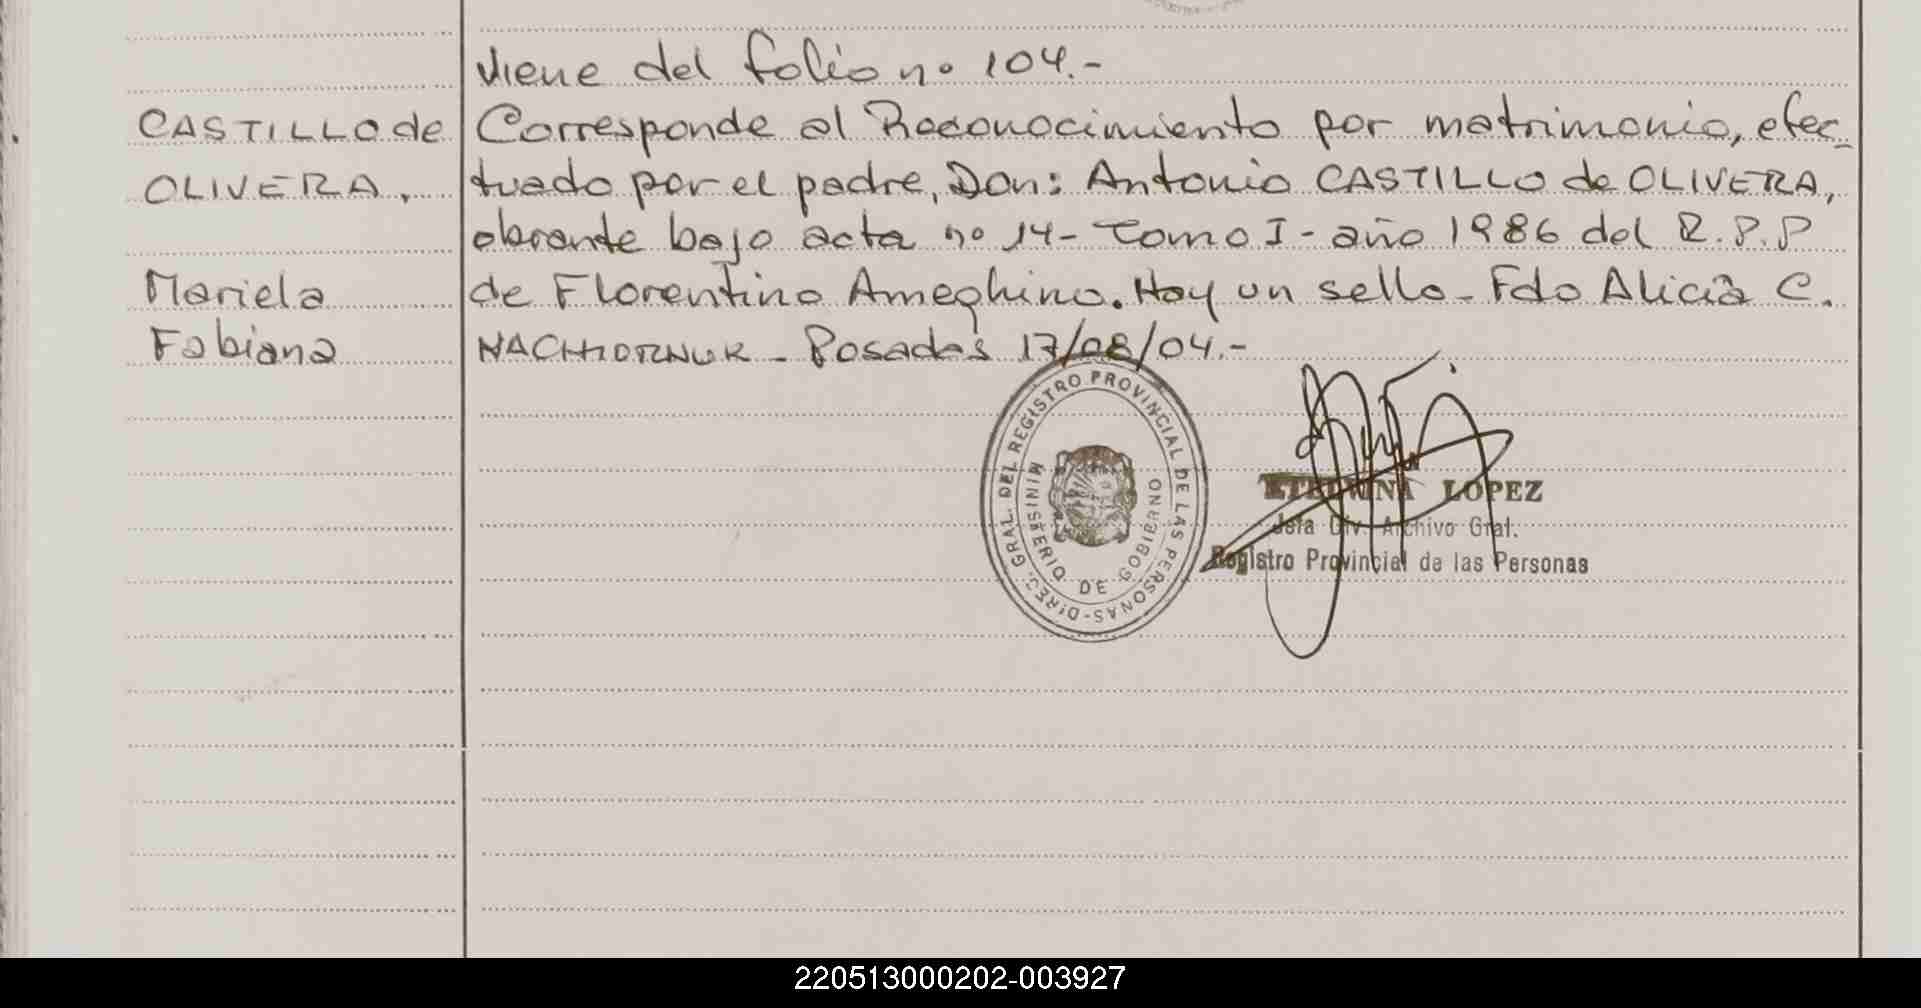 viene del folio no 104.-
CASTILLO de
OLIVERA,
Mariela
Fabiana
Corresponde al Reconocimiento por matrimonio, efec_
tuado por el padre, Don: Antonio CASTILLO de OLIVERA,
obrante bajo acta no 14- Tomo I- año 1986 del R.P.P
de Florentino Ameghino. Hay un sello_ Fdo Alicia C.
_ Posadas 17/08/04.-
DIREC. GRAL. DEL REGISTRO PROVINCIAL DE LAS PERSONAS-
MINISTERIO DE GOBIERNO
LOPEZ
Jefa Div. Archivo Gral.
Registro Provincial de las Personas
220513000202-003927